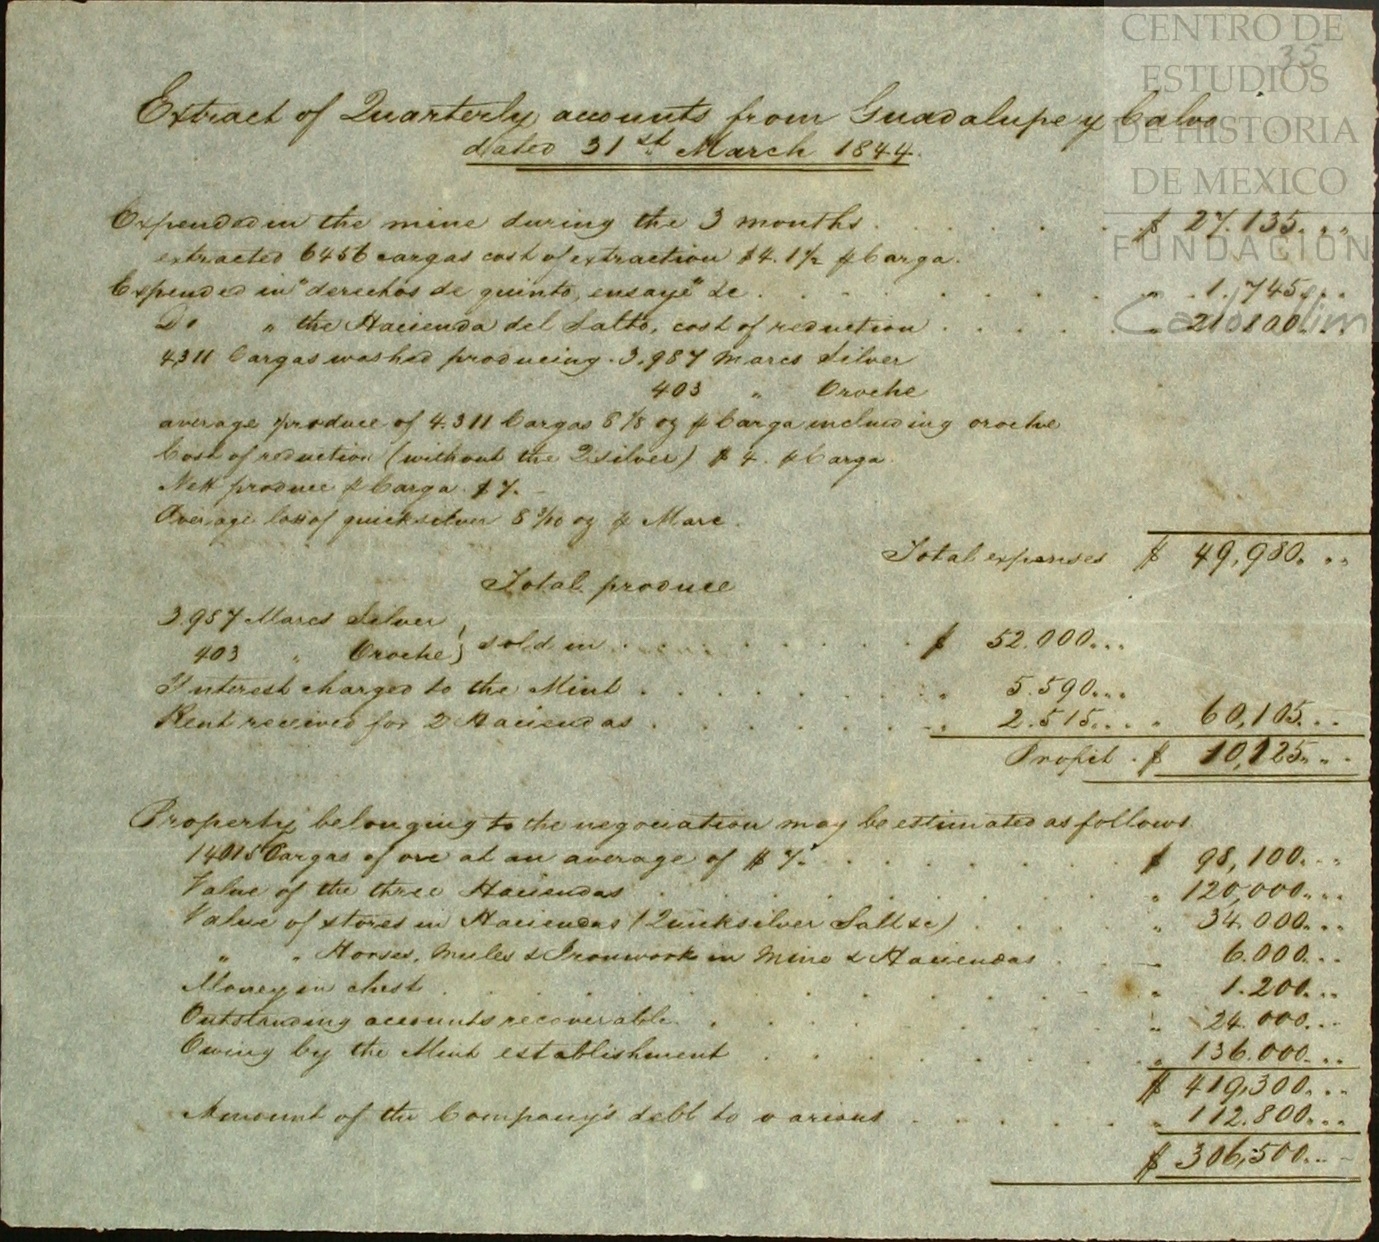 CENTRO DE
ESTUDIOS
DE HISTORIA
DE MEXICO
FUNDACIÓN
35
Extract of Quarterly accounts from Guadalupe y Calvo
dated 31st March 1844.
Expended in the mine during the 3 months . . . . . . $ 27.135. " "
extracted 6456 cargas cost of extraction $4. 1½ p Carga.
Expended in "derechos de quinto, ensaye" &c . . . . . . " 1.745. " "
Do " the Hacienda del Salto, cost of reduction . . . . . " 21.100. " "
4311 Cargas washed producing . 3.987 Marcs Silver
403 " Oroche
average produce of 4.311 Cargas 8 1/8 oz p Carga including oroche
Cost of reduction (without the Qsilver) $ 4. p Carga.
Nett produce p Carga $ 7. -
Average loss of quicksilver 8 3/10 oz p Marc.
Total expenses $ 49,980. " "
Total produce
3.987 Marcs Silver
403 " Oroche } sold in . . . . . . $ 52.000. . .
Interest charged to the Mint . . . . . . " 5.590. . .
Rent received for 2 Haciendas . . . . . . " 2.515. . . " 60,105. . .
Profit . $ 10,125. " .
Property belonging to the negociation may be estimated as follows
14015 Cargas of ore at an average of $ 7. . . . . . . $ 98,100. . .
Value of the three Haciendas . . . . . . " 120,000. . .
Value of stores in Haciendas (Quicksilver Salt &c) . . . . " 34.000. . .
" " Horses, Mules & Ironwork in Mine & Haciendas . . . 6.000. . .
Money in chest . . . . . . " 1.200. . .
Outstanding accounts recoverable . . . . . . " 24.000. . .
Owing by the Mint establishment . . . . . . " 136.000. . .
$ 419,300. . .
Amount of the Company's debt to various . . . . . " 112.800. . .
$ 306,500. . .